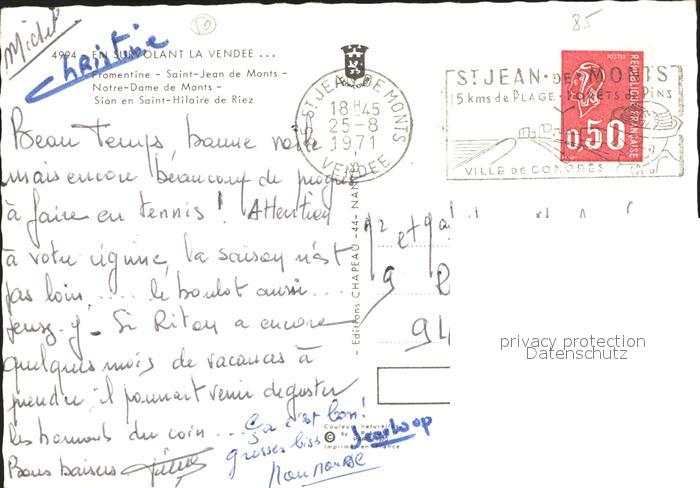 Michel
Christine
85
4994 - EN SURVOLANT LA VENDEE ...
Fromentine - Saint-Jean de Monts -
Notre-Dame de Monts -
Sion en Saint-Hilaire de Riez
85 ST JEAN DE MONTS
18H45
25-8
1971
VENDEE
ST JEAN-DES MONTS
15 kms de PLAGE - FORETS de PINS
VILLE DE CONGRES
POSTES
REPUBLIQUE FRANCAISE
0,50
Beau temps, bonne note
mais encore beaucoup de progrès
à faire en tennis ! Attention
à votre régime, la saison n'est
pas loin, .... le boulot aussi ...
pensez-y - Si Riton a encore
quelques mois de vacances à
prendre il pourrait venir deguster
les homards du coin ...
Bons baisers
ça c'est bon!
grosses bises
Jeanloup
Nounouse
Editions CHAPEAU -44- NANTES
et
9
94
Couleurs naturelles
©
Imprimé en France
privacy protection
Datenschutz